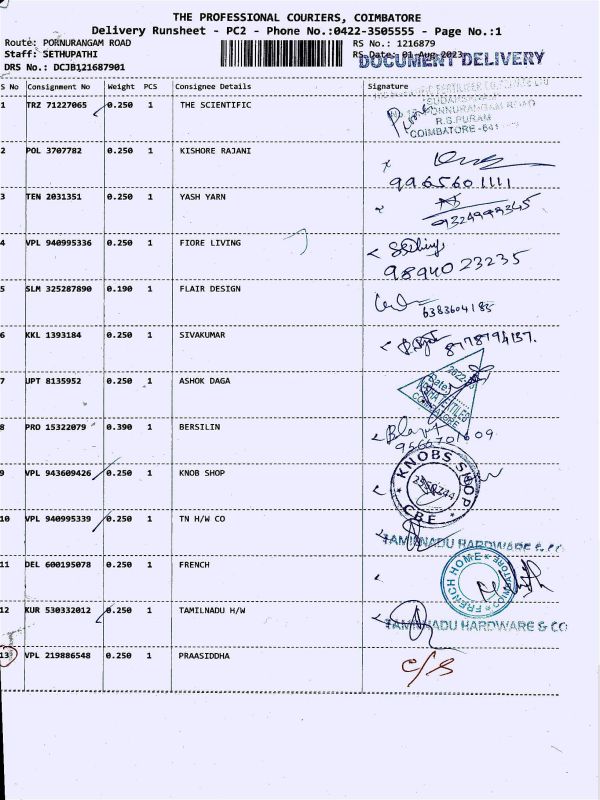 THE PROFESSIONAL COURIERS, COIMBATORE
Delivery Runsheet - PC2 - Phone No.:0422-3505555 - Page No.:1
Route: PORNURANGAM ROAD RS No.: 1216879
Staff: SETHUPATHI RS Date: 01-Aug-2023
DOCUMENT DELIVERY
DRS No.: DCJB121687901
S No Consignment No Weight PCS Consignee Details Signature
1 TRZ 71227065 0.250 1 THE SCIENTIFIC
R.S.PURAM
COIMBATORE-641
2 POL 3707782 0.250 1 KISHORE RAJANI
9965601111
3 TEN 2031351 0.250 1 YASH YARN
9324999345
4 VPL 940995336 0.250 1 FIORE LIVING
9894023235
5 SLM 325287890 0.190 1 FLAIR DESIGN
6383604185
6 KKL 1393184 0.250 1 SIVAKUMAR
8778794137.
7 UPT 8135952 0.250 1 ASHOK DAGA
Date:
COIMBATORE
8 PRO 15322079 0.390 1 BERSILIN
9 VPL 943609426 0.250 1 KNOB SHOP
KNOBS SHOP
CBE
10 VPL 940995339 0.250 1 TN H/W CO
TAMILNADU HARDWARE & CO
11 DEL 600195078 0.250 1 FRENCH
FRENCH HOME
COIMBATORE
12 KUR 530332012 0.250 1 TAMILNADU H/W
TAMILNADU HARDWARE & CO
13 VPL 219886548 0.250 1 PRAASIDDHA
C/S